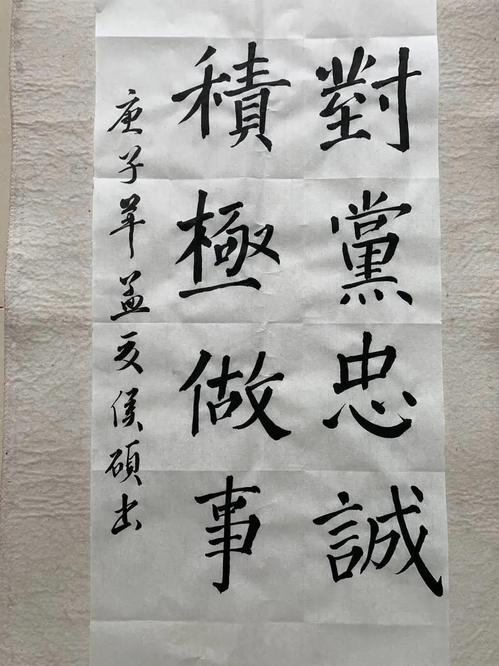 對黨忠誠
積極做事
庚子年孟夏侯碩書